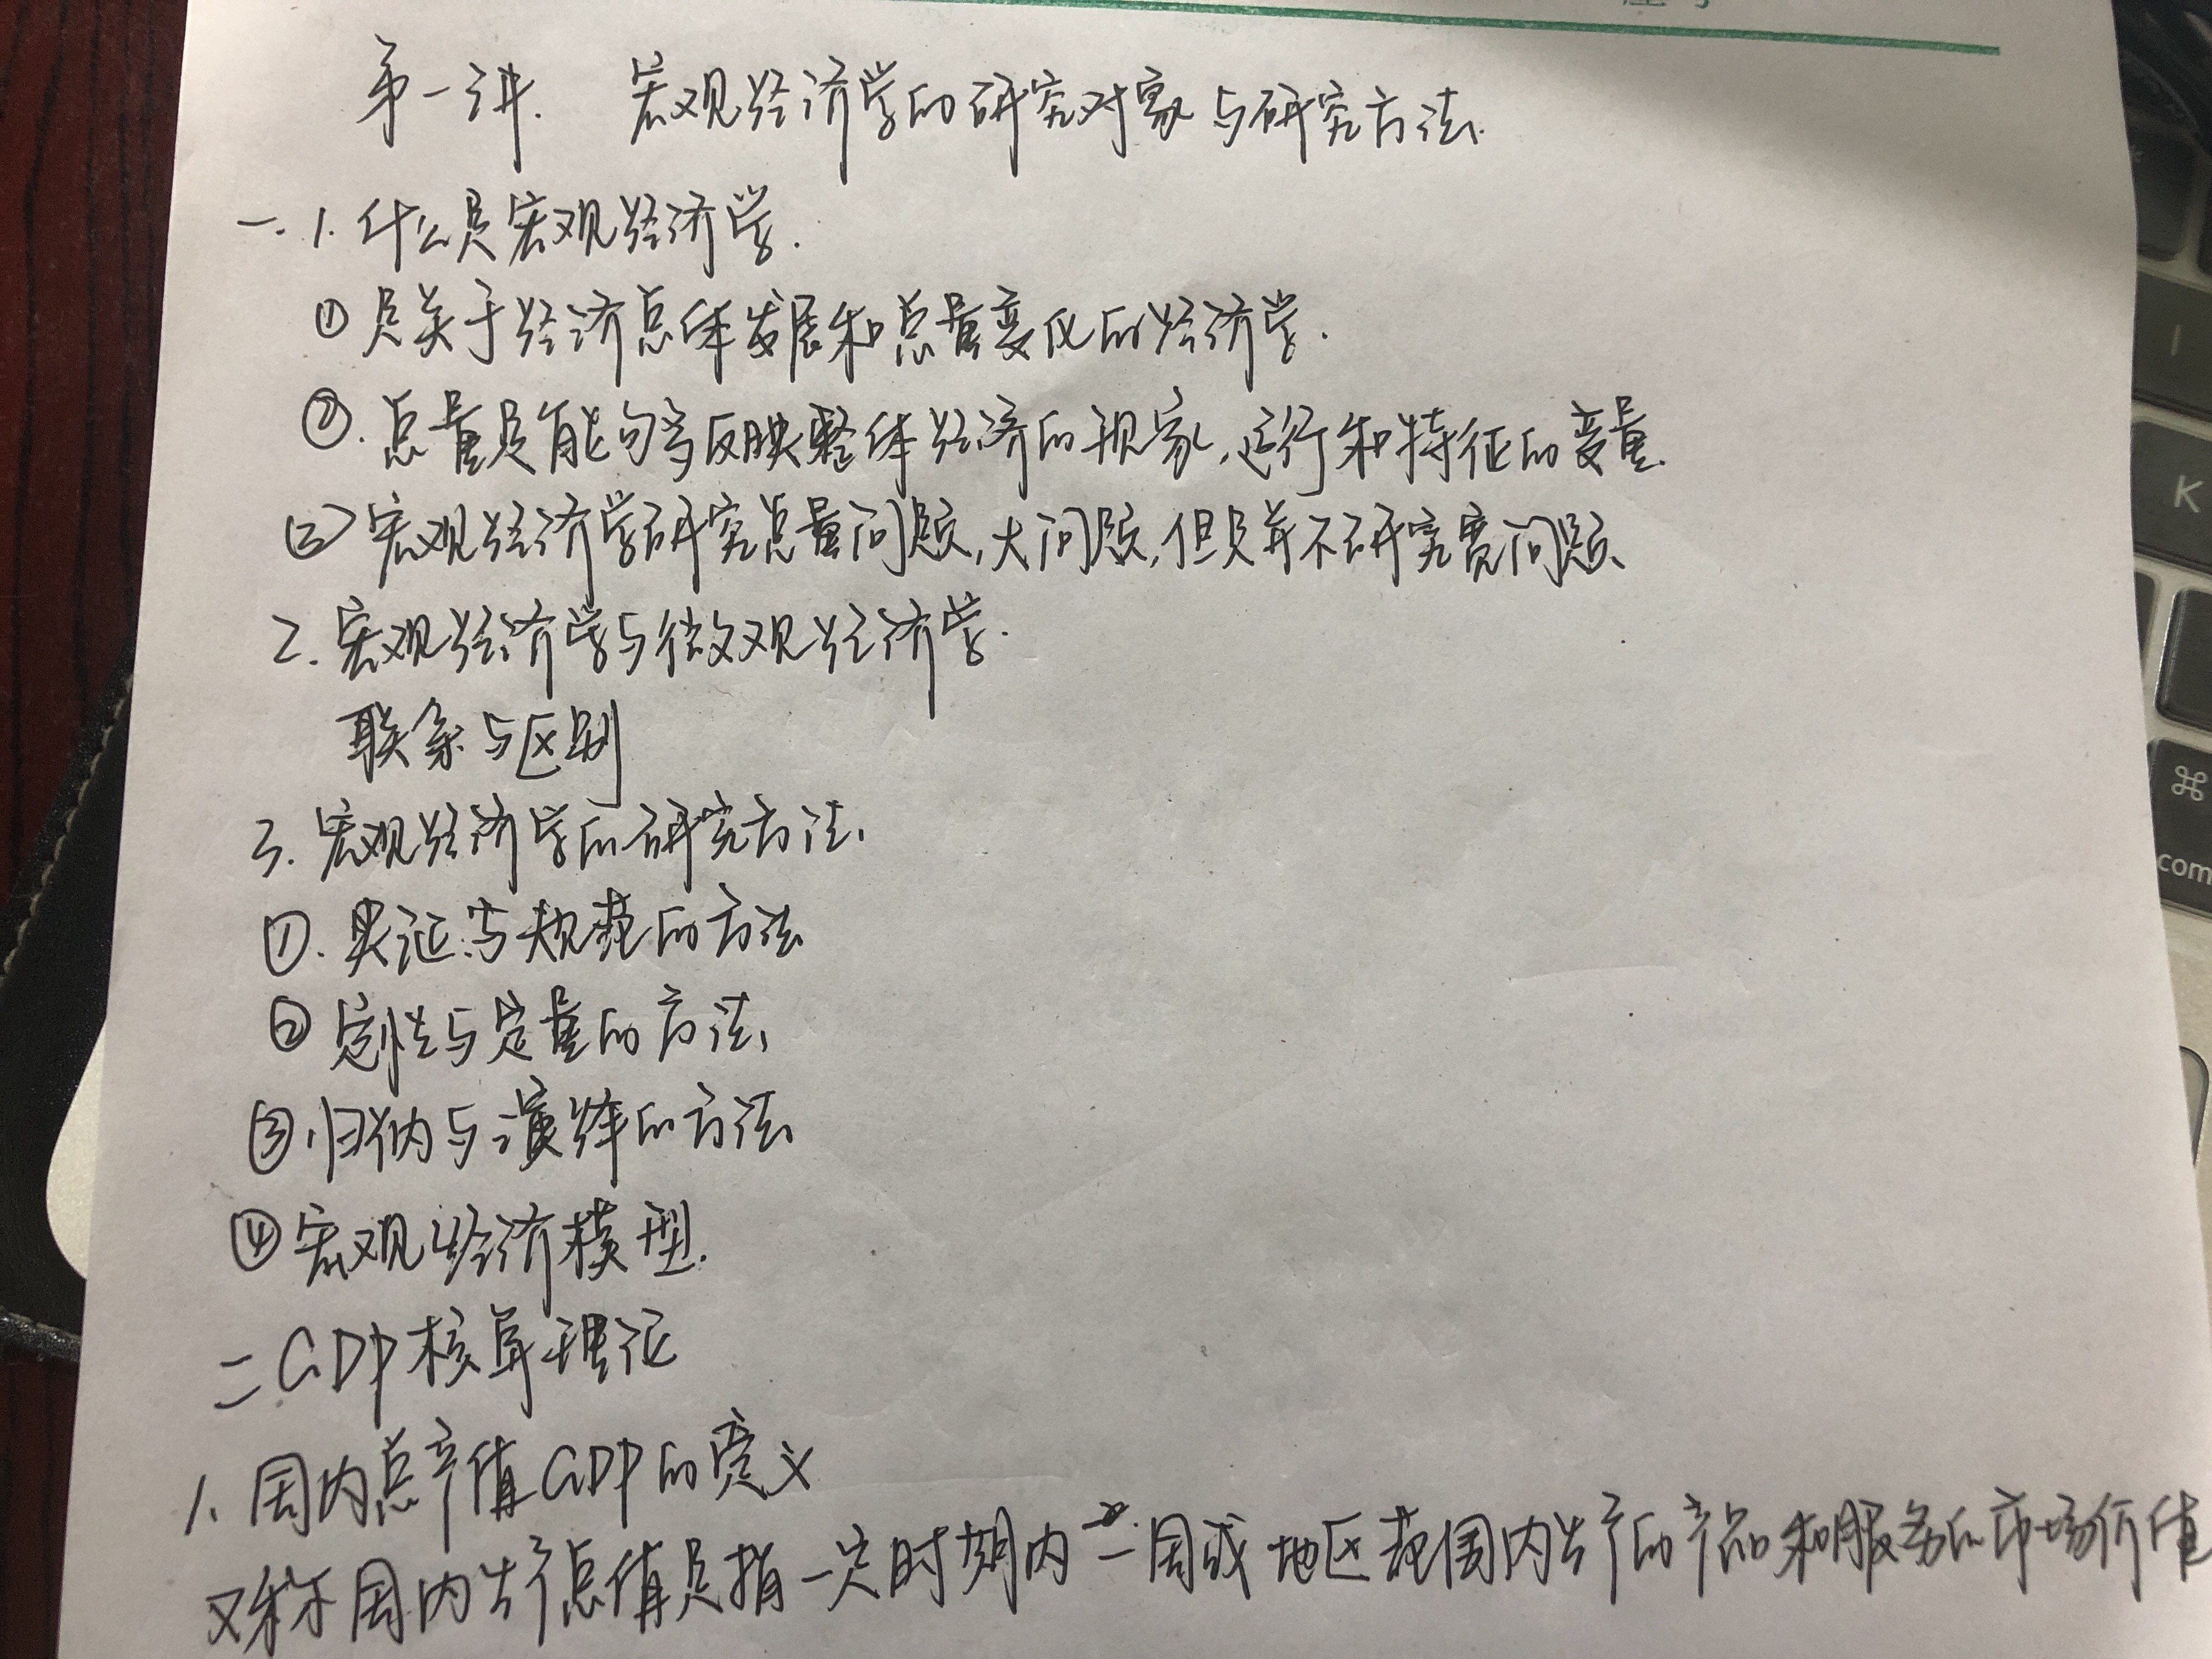 第一讲. 宏观经济学的研究对象与研究方法.
一. 1. 什么是宏观经济学.
① 是关于经济总体发展和总量变化的经济学.
②. 总量是能够反映整体经济的现象,运行和特征的变量.
③ 宏观经济学研究总量问题,大问题,但是并不研究宽问题.
2. 宏观经济学与微观经济学.
联系与区别
3. 宏观经济学的研究方法.
①. 实证与规范的方法
② 定性与定量的方法.
③ 归纳与演绎的方法
④ 宏观经济模型.
二 GDP核算理论
1. 国内总产值GDP的意义
又称国内生产总值是指一定时期内一国或地区范围内生产的产品和服务的市场价值
K
⌘
com